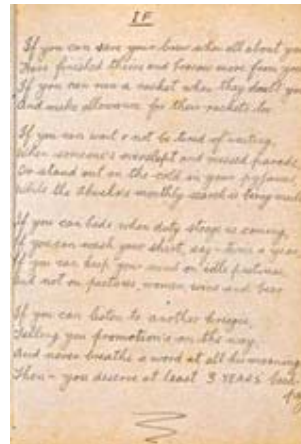 IF
If you can save your beer when all about you
Have finished theirs and borrow more from you
If you can run a racket when they doubt you
And make allowance for their rackets too
If you can wait & not be tired of waiting
When someone's overslept and missed parade,
Or stand out in the cold in your pyjamas
While the monthly search is being made
If you can hide when duty stooge is coming
If you can wash your shirt, say - twice a year,
If you can keep your mind on idle pastures
But not on pastures, women, wine and beer
If you can listen to another
Telling you promotion's on the way
And never breathe a word at all his moaning
Then - you deserve at least 3 YEARS' back